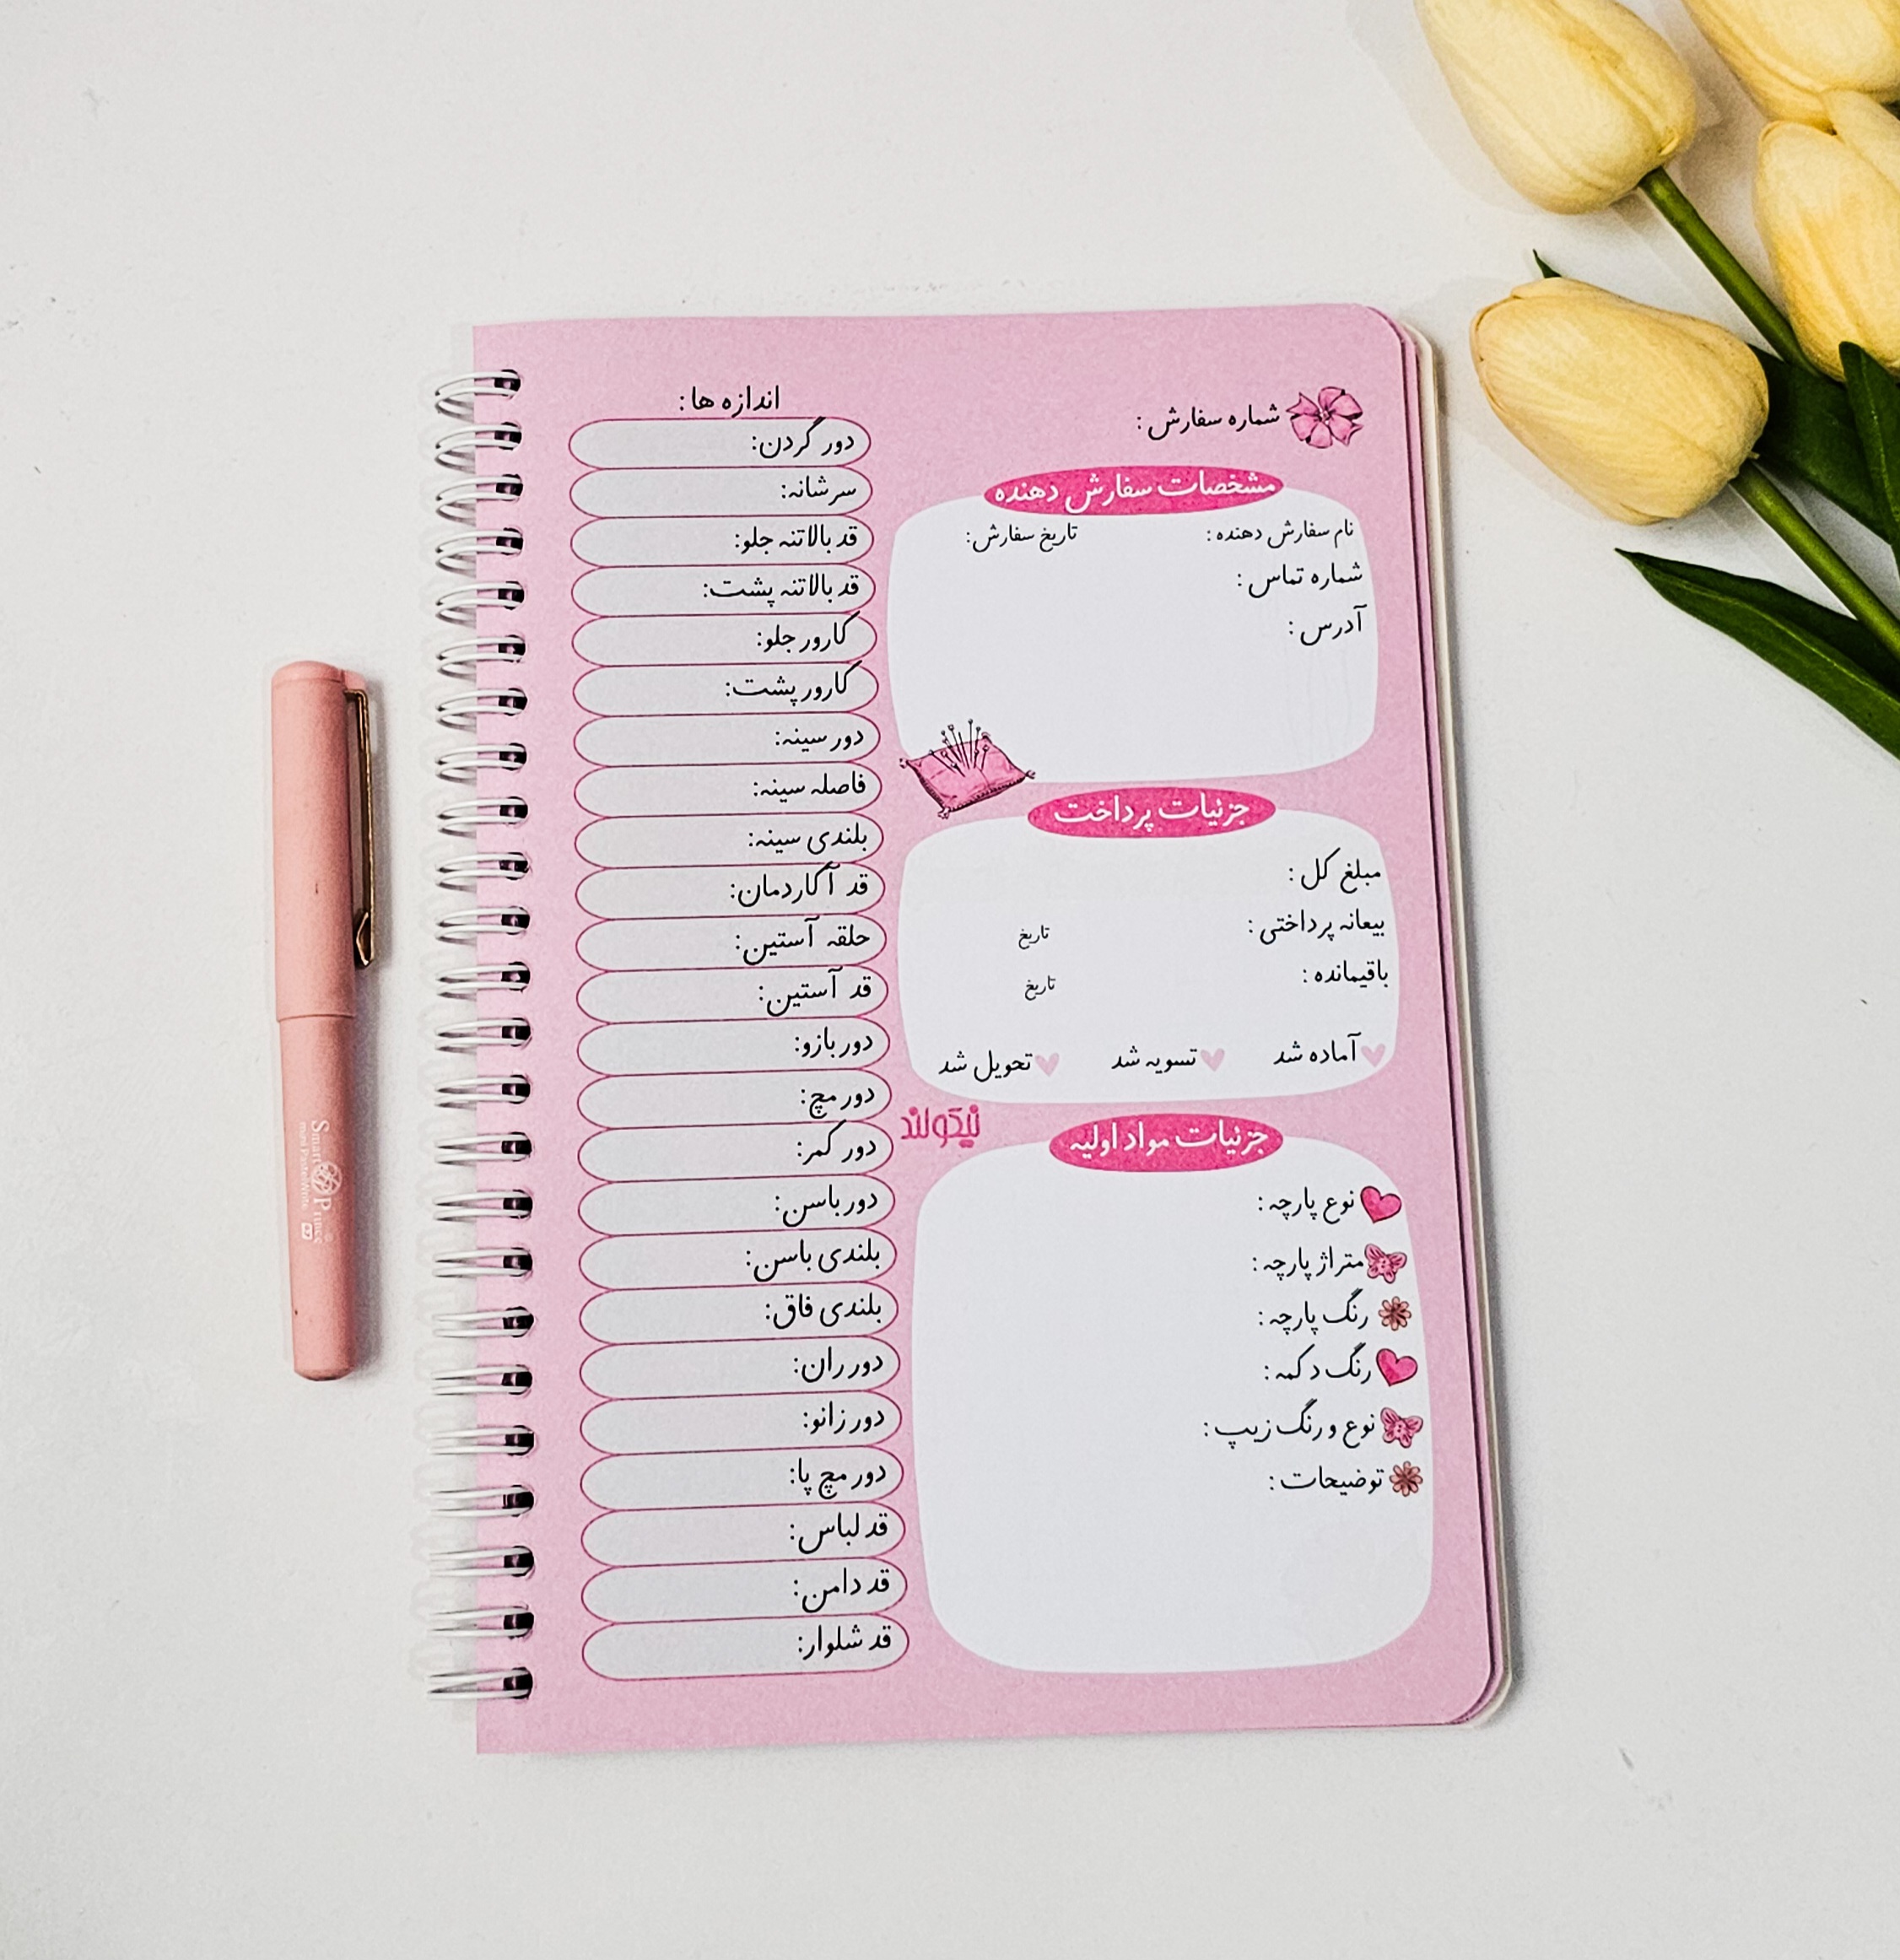 شماره سفارش :
مشخصات سفارش دهنده
نام سفارش دهنده : تاریخ سفارش:
شماره تماس :
آدرس :
جزئیات پرداخت
مبلغ کل :
بیعانه پرداختی : تاریخ
باقیمانده : تاریخ
آماده شد تسویه شد تحویل شد
نیکولند
جزئیات مواد اولیه
نوع پارچه :
متراژ پارچه :
رنگ پارچه :
رنگ دکمه :
نوع و رنگ زیپ :
توضیحات :
اندازه ها :
دور گردن:
سرشانه:
قد بالاتنه جلو:
قد بالاتنه پشت:
کارور جلو:
کارور پشت:
دور سینه:
فاصله سینه:
بلندی سینه:
قد آکاردمان:
حلقه آستین:
قد آستین:
دور بازو:
دور مچ:
دور کمر:
دور باسن:
بلندی باسن:
بلندی فاق:
دور ران:
دور زانو:
دور مچ پا:
قد لباس:
قد دامن:
قد شلوار:
Smart Pinec